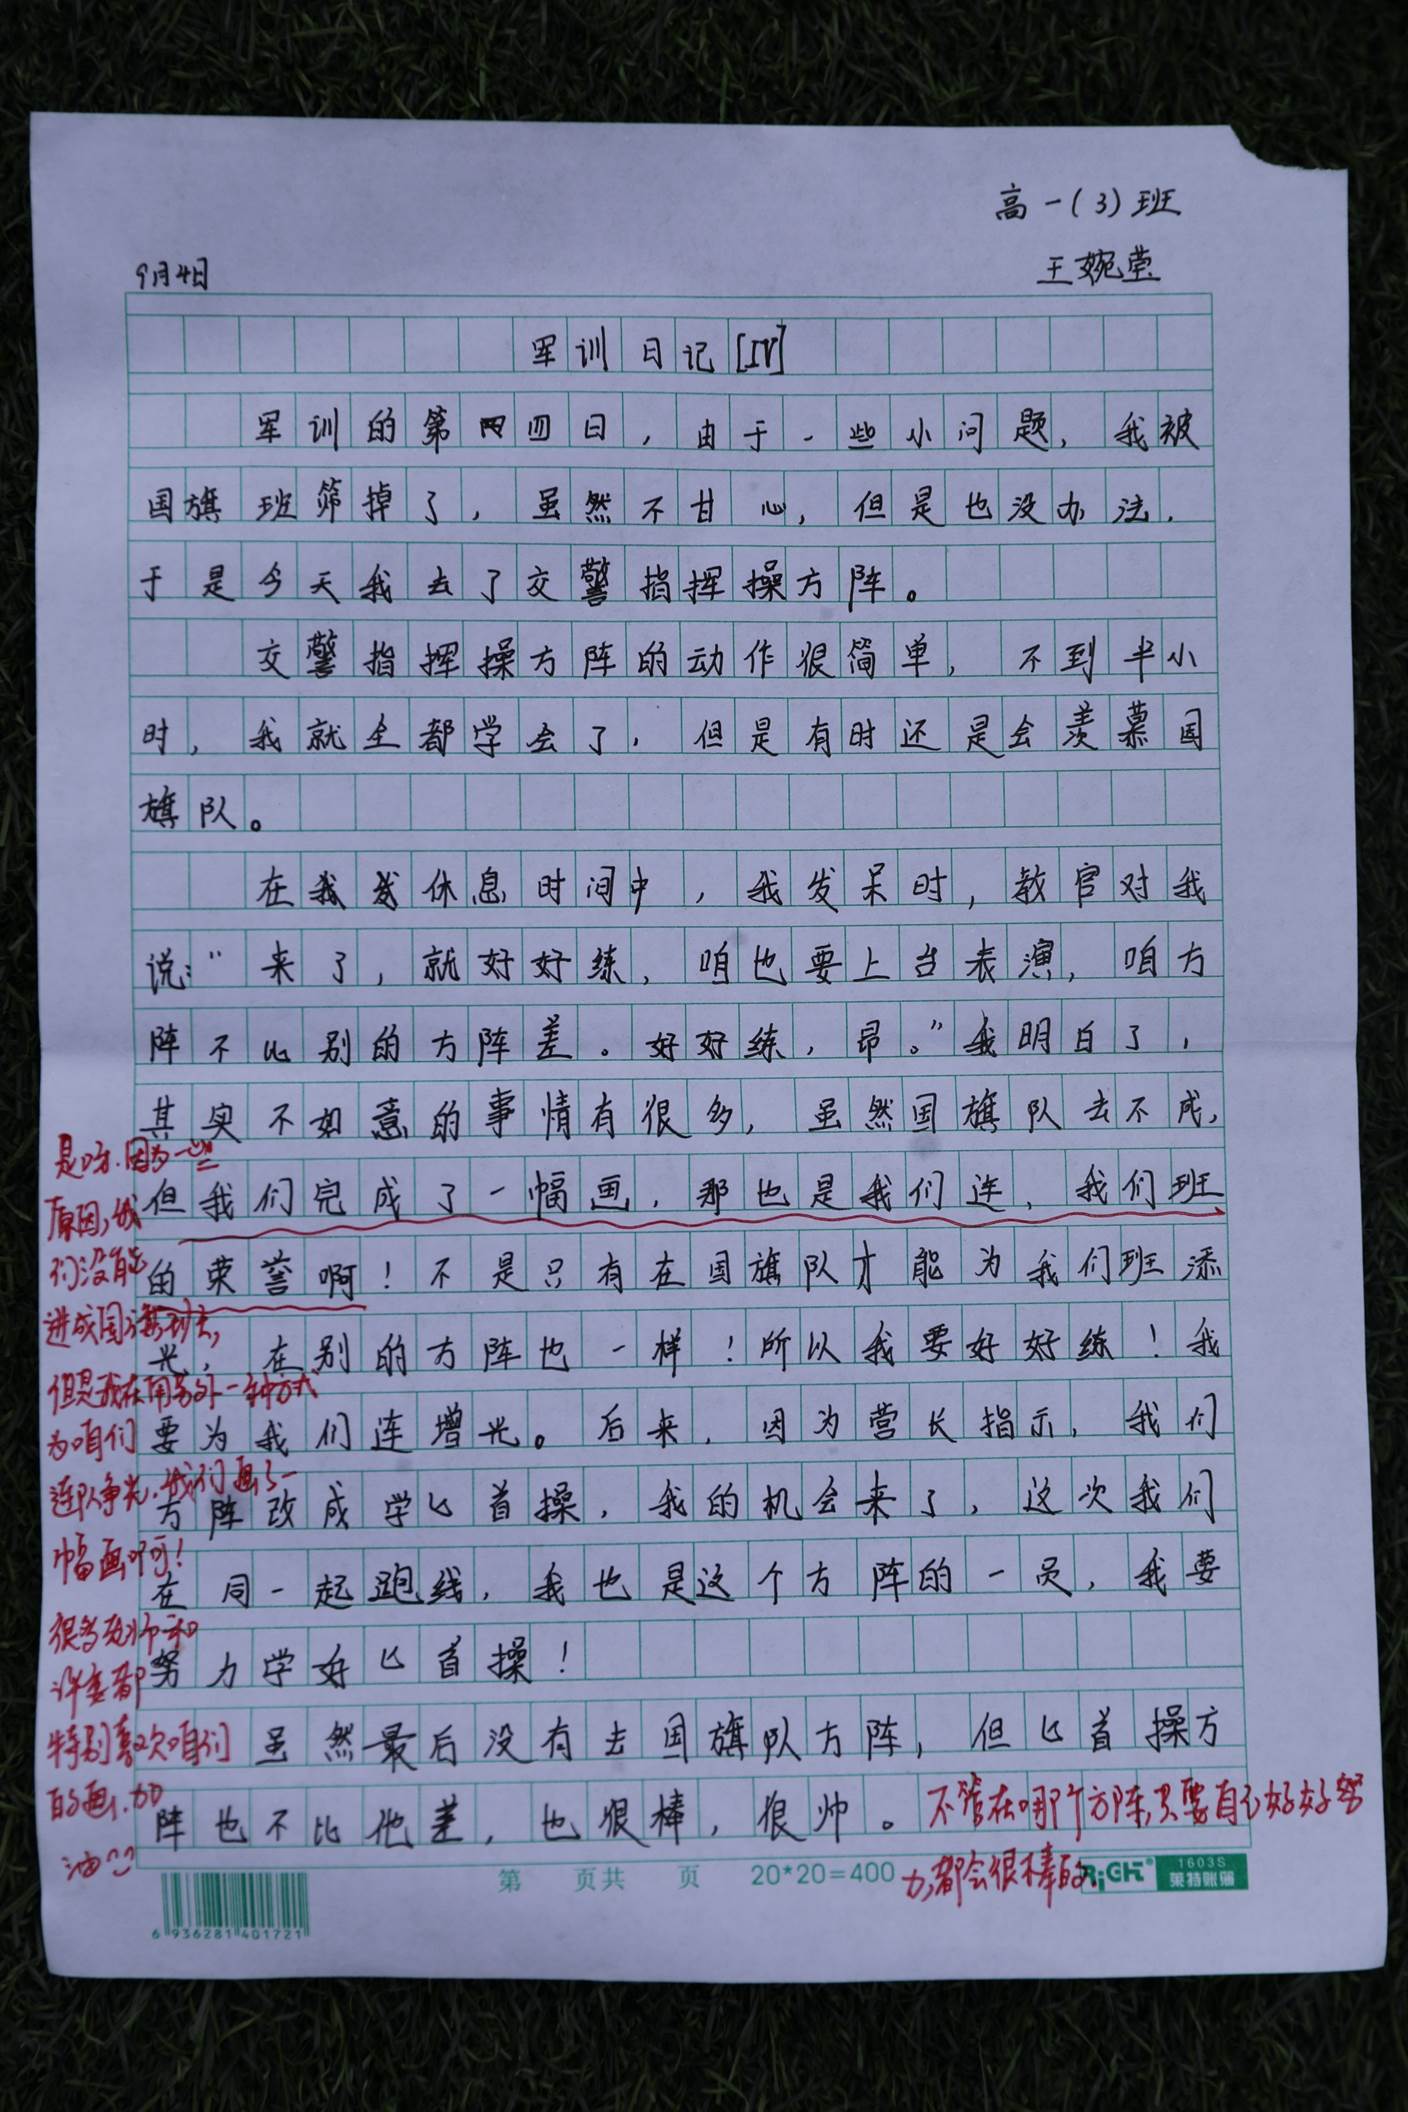 高一(3)班
9月4日
王婉莹
军训日记[IV]
军训的第四四日，由于一些小问题，我被
国旗班筛掉了，虽然不甘心，但是也没办法，
于是今天我去了交警指挥操方阵。
交警指挥操方阵的动作很简单，不到半小
时，我就全都学会了，但是有时还是会羡慕国
旗队。
在我我休息时间中，我发呆时，教官对我
说：“来了，就好好练，咱也要上台表演，咱方
阵不比别的方阵差。好好练，昂。”我明白了，
其实不如意的事情有很多，虽然国旗队去不成，
但我们完成了一幅画，那也是我们连，我们班
的荣誉啊！不是只有在国旗队才能为我们班添
光，在别的方阵也一样！所以我要好好练！我
要为我们连增光。后来，因为营长指示，我们
方阵改成学匕首操，我的机会来了，这次我们
在同一起跑线，我也是这个方阵的一员，我要
努力学好匕首操！
虽然最后没有去国旗队方阵，但匕首操方
阵也不比他差，也很棒，很帅。
是呀.因为一些
原因,我
们没能
进成国旗班去,
但是我在用另外一种方式
为咱们
连队争光.我们画了一
幅画啊！
很多老师和
评委都
特别喜欢咱们
的画.加
油
不管在哪个方阵,只要自己好好努
力,都会很棒的.
第 页共 页 20*20=400
RiGHT 1603S
莱特账簿
6 936281 401721